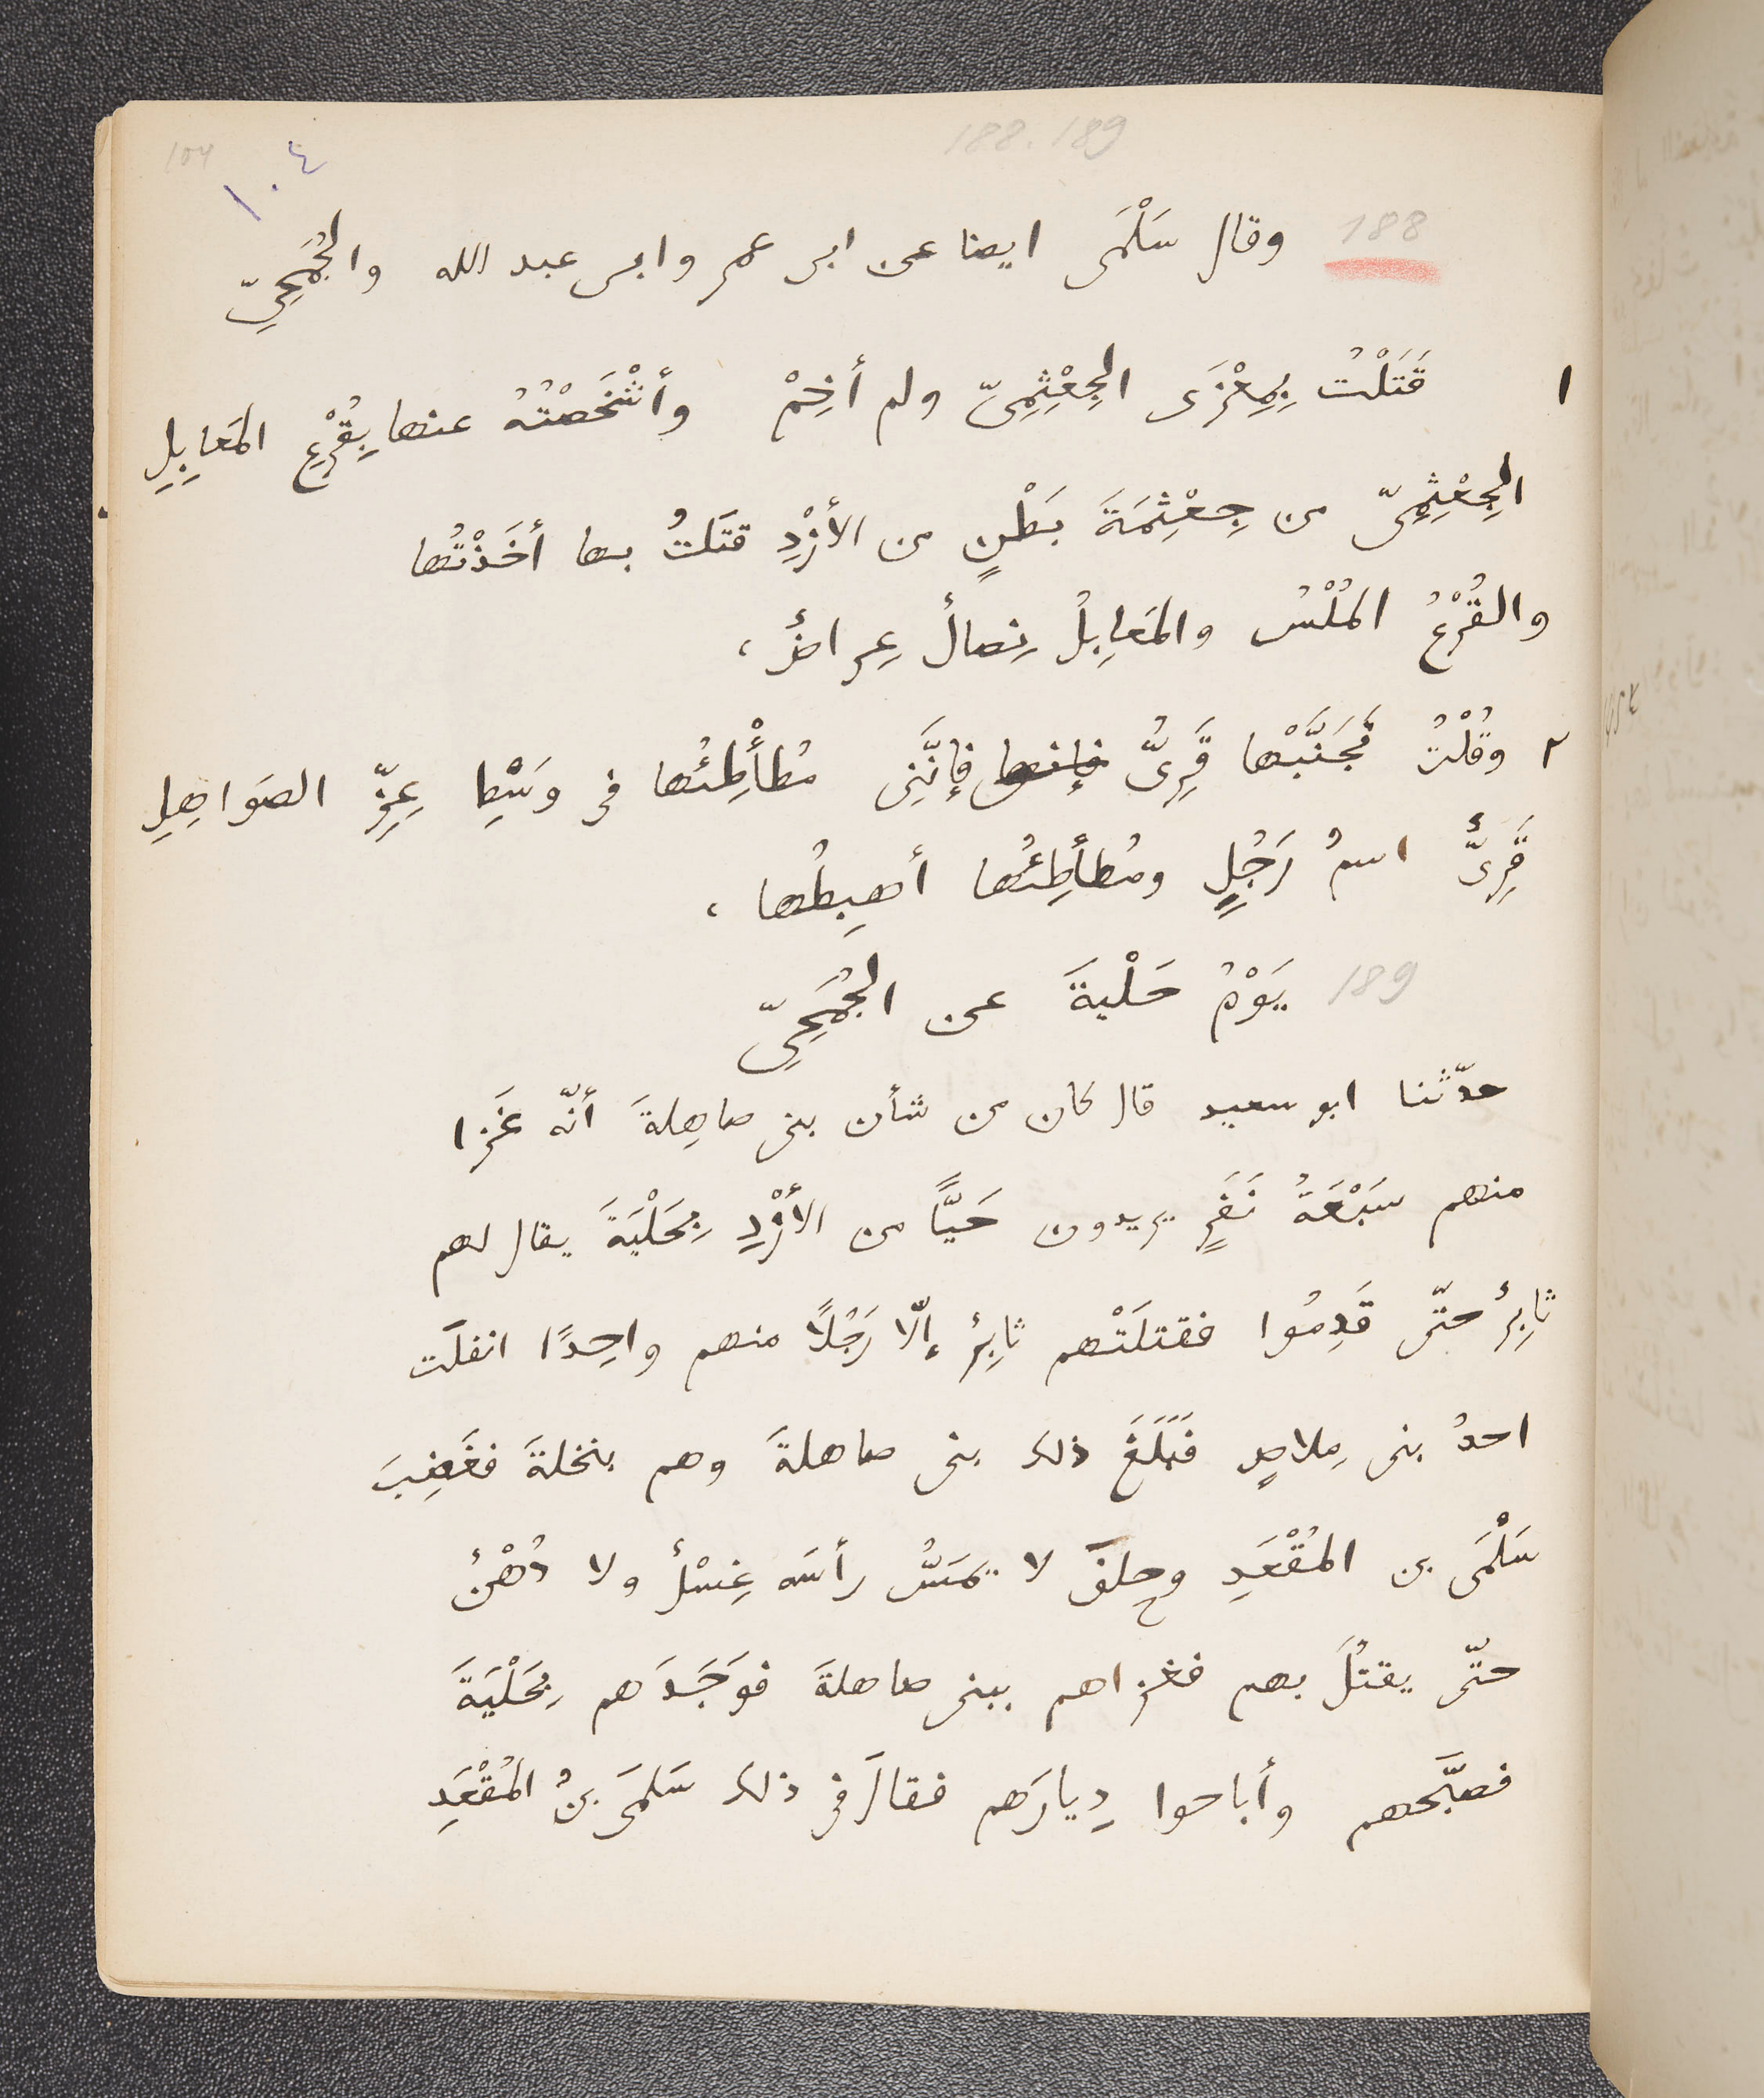 188. 189
104
١٠٤
188 وقال سَلْمَى ايضا عن ابى عمرو ابى عبد الله والجُمَحِيّ
١ قَتَلْتُ بِمِعْزَى الجِعْثِمِىّ ولم أَخِمْ وأَشْخَصْتُهُ عنها بِقُرْعِ المَعابِلِ
الجِعْثِمِىّ من جِعْثِمَةَ بَطْنٍ من الأَزْدِ قتَلتُ بها أَخَذْتُها
والقُرْعُ المُلْسُ والمَعابِلُ نِصالٌ عِراضٌ،
٢ وقُلْتُ تَجَنَّبْها قَرِىُّ فإنها فإنَّنِى مُطأْطِئُها فى وَسْطِ عِزِّ الصَواهِلِ
قَرِىٌّ اسمُ رَجُلٍ ومُطأطِئُها أهبِطُها،
189 يَوْمُ حَلْيةَ عن الجُمَحِىّ
حدّثنا ابو سعيد قال كان من شأن بنى صاهِلةَ أنّه غَزا
منهم سَبْعَةُ نَفَرٍ يريدون حَيًّا من الأَزْدِ بِحَلْيَةَ يقال لهم
ثابِرٌ حتّى قَدِمُوا فقتلَتْهم ثابِرٌ إلّا رَجُلًا منهم واحِدًا انفلَت
احدُ بنى مِلاصٍ فبَلَغَ ذلك بنى صاهلةَ وهم بنخلةَ فغَضِبَ
سَلْمَى بن المُقْعَدِ وحلفَ لا يَمَسُّ رأسَه غِسْلٌ ولا دُهْنٌ
حتّى يقتُلَ بهم فغزاهم ببنى صاهلةَ فوَجَدَهم بِحَلْيَةَ
فصبَّحهم وأباحوا دِيارَهم فقالَ فى ذلك سَلمَى بنُ المُقْعَدِ